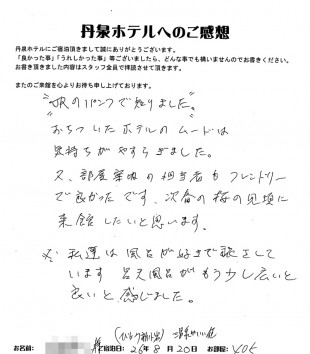 丹泉ホテルへのご感想
丹泉ホテルにご宿泊頂きまして誠にありがとうございます。
「良かった事」「うれしかった事」等ございましたら、どんな事でも構いませんのでお書きください。
お書き頂きました内容はスタッフ全員で拝読させて頂きます。
またのご来館を心よりお待ち申し上げております。
"JRのパンフで知りました。"
おちついたホテルのムードは
気持ちがやすらぎました。
又、部屋等の担当者もフレンドリー
で良かったです。次会の桜の見頃に
来館したいと思います。
※ 私達は風呂が好きで旅をして
います 呂天風呂がもう少し広いと
良いと感じました。
お名前: 様 ご宿泊日: 26年 8月 20日 お部屋: 405